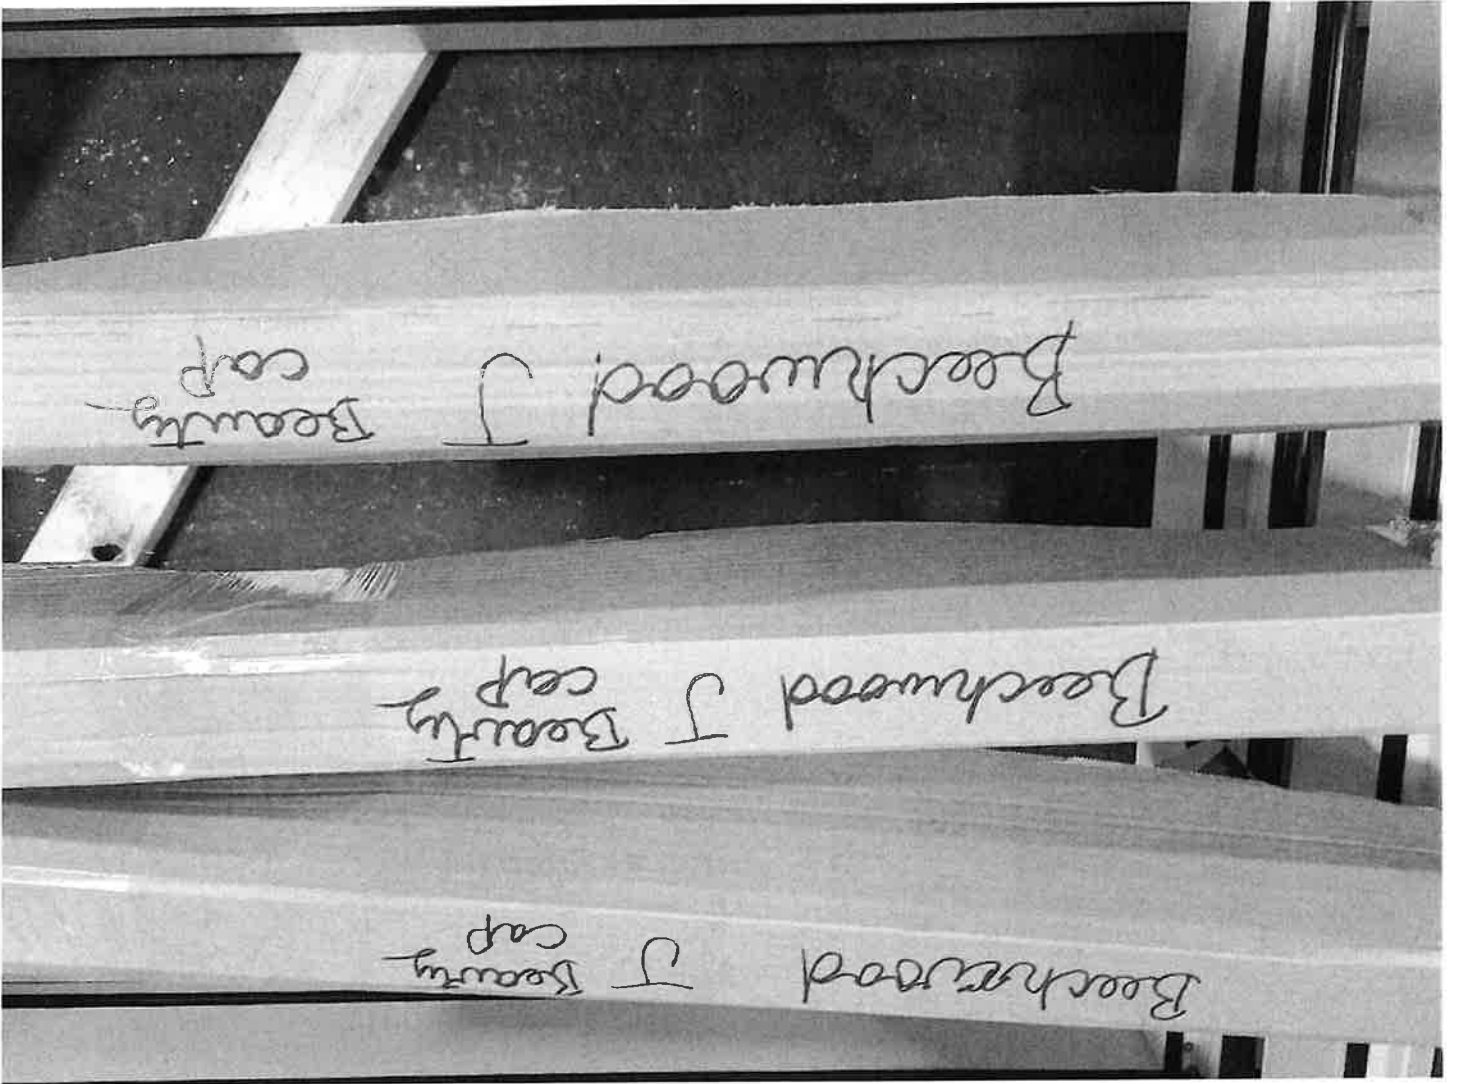 Beechwood J Beauty
cap
Beechwood J Beauty
cap
Beechwood J Beauty
cap